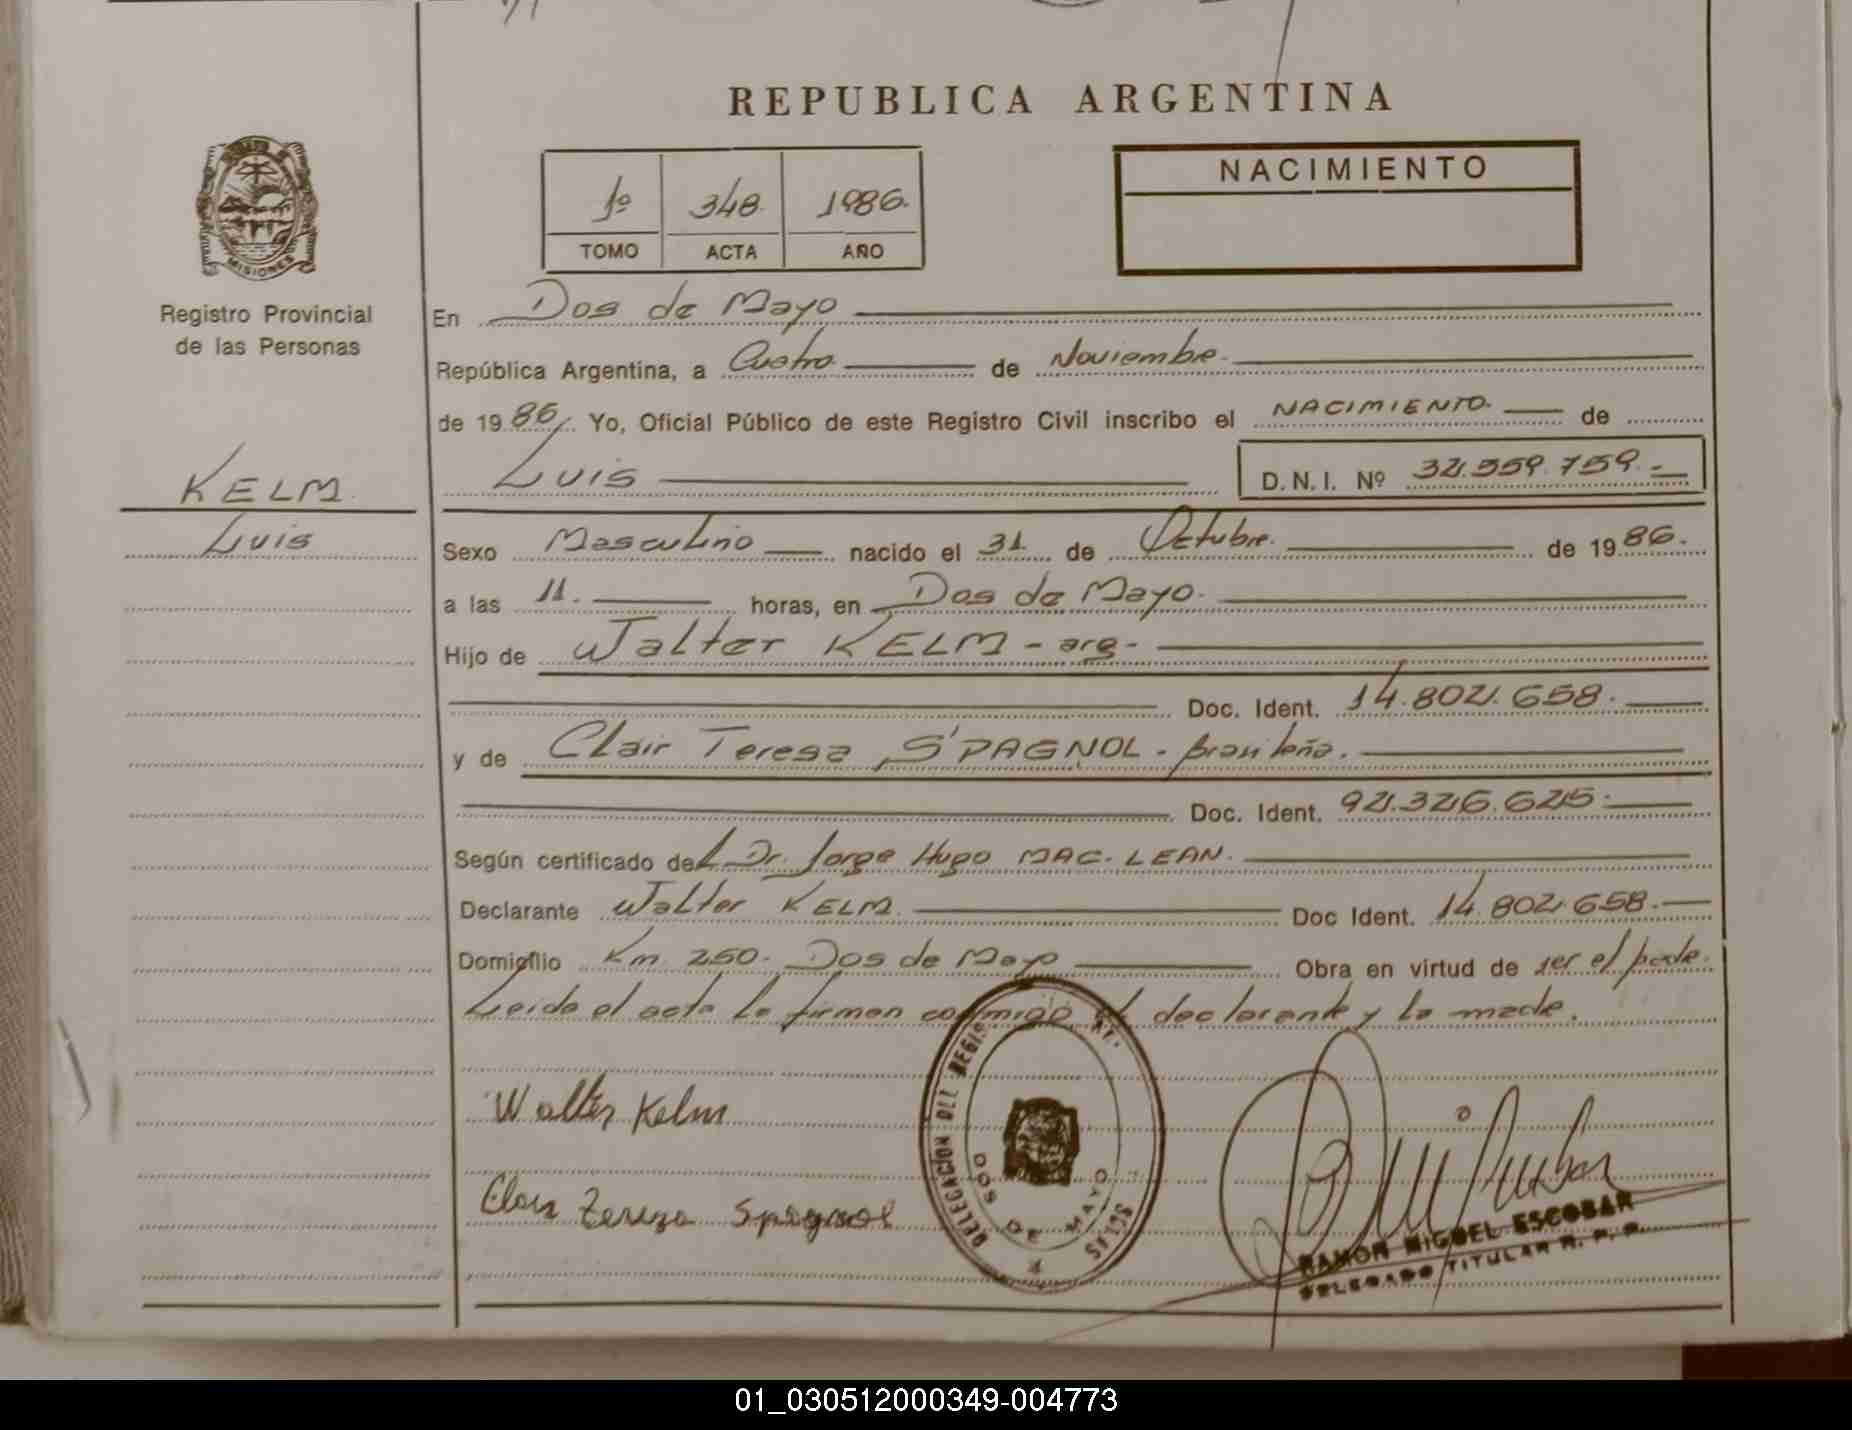 REPUBLICA ARGENTINA
1º 348. 1986.
TOMO ACTA AÑO
NACIMIENTO
MISIONES
Registro Provincial
de las Personas
KELM
Luis
En Dos de Mayo
República Argentina, a Cuatro de Noviembre.
de 19 86, Yo, Oficial Público de este Registro Civil inscribo el NACIMIENTO. de
Luis D.N.I. Nº 32.559.759.-
Sexo Masculino nacido el 31 de Octubre. de 19 86.
a las 11. horas, en Dos de Mayo.
Hijo de Walter KELM - arg-
Doc. Ident. 14.802.658.
y de Clair Teresa SPAGNOL - brasileña.
Doc. Ident. 92.326.625.
Según certificado del Dr. Jorge Hugo MAC. LEAN.
Declarante Walter KELM. Doc Ident. 14.802.658.
Domicilio Km. 250. Dos de Mayo Obra en virtud de ser el padre.
Leida el acta la firman conmigo el declarante y la madre.
Walter Kelm
Clair Tereza Spagnol
DOS DE MAYO
RAMON MIGUEL ESCOBAR
DELEGADO TITULAR R. P. P.
01_030512000349-004773